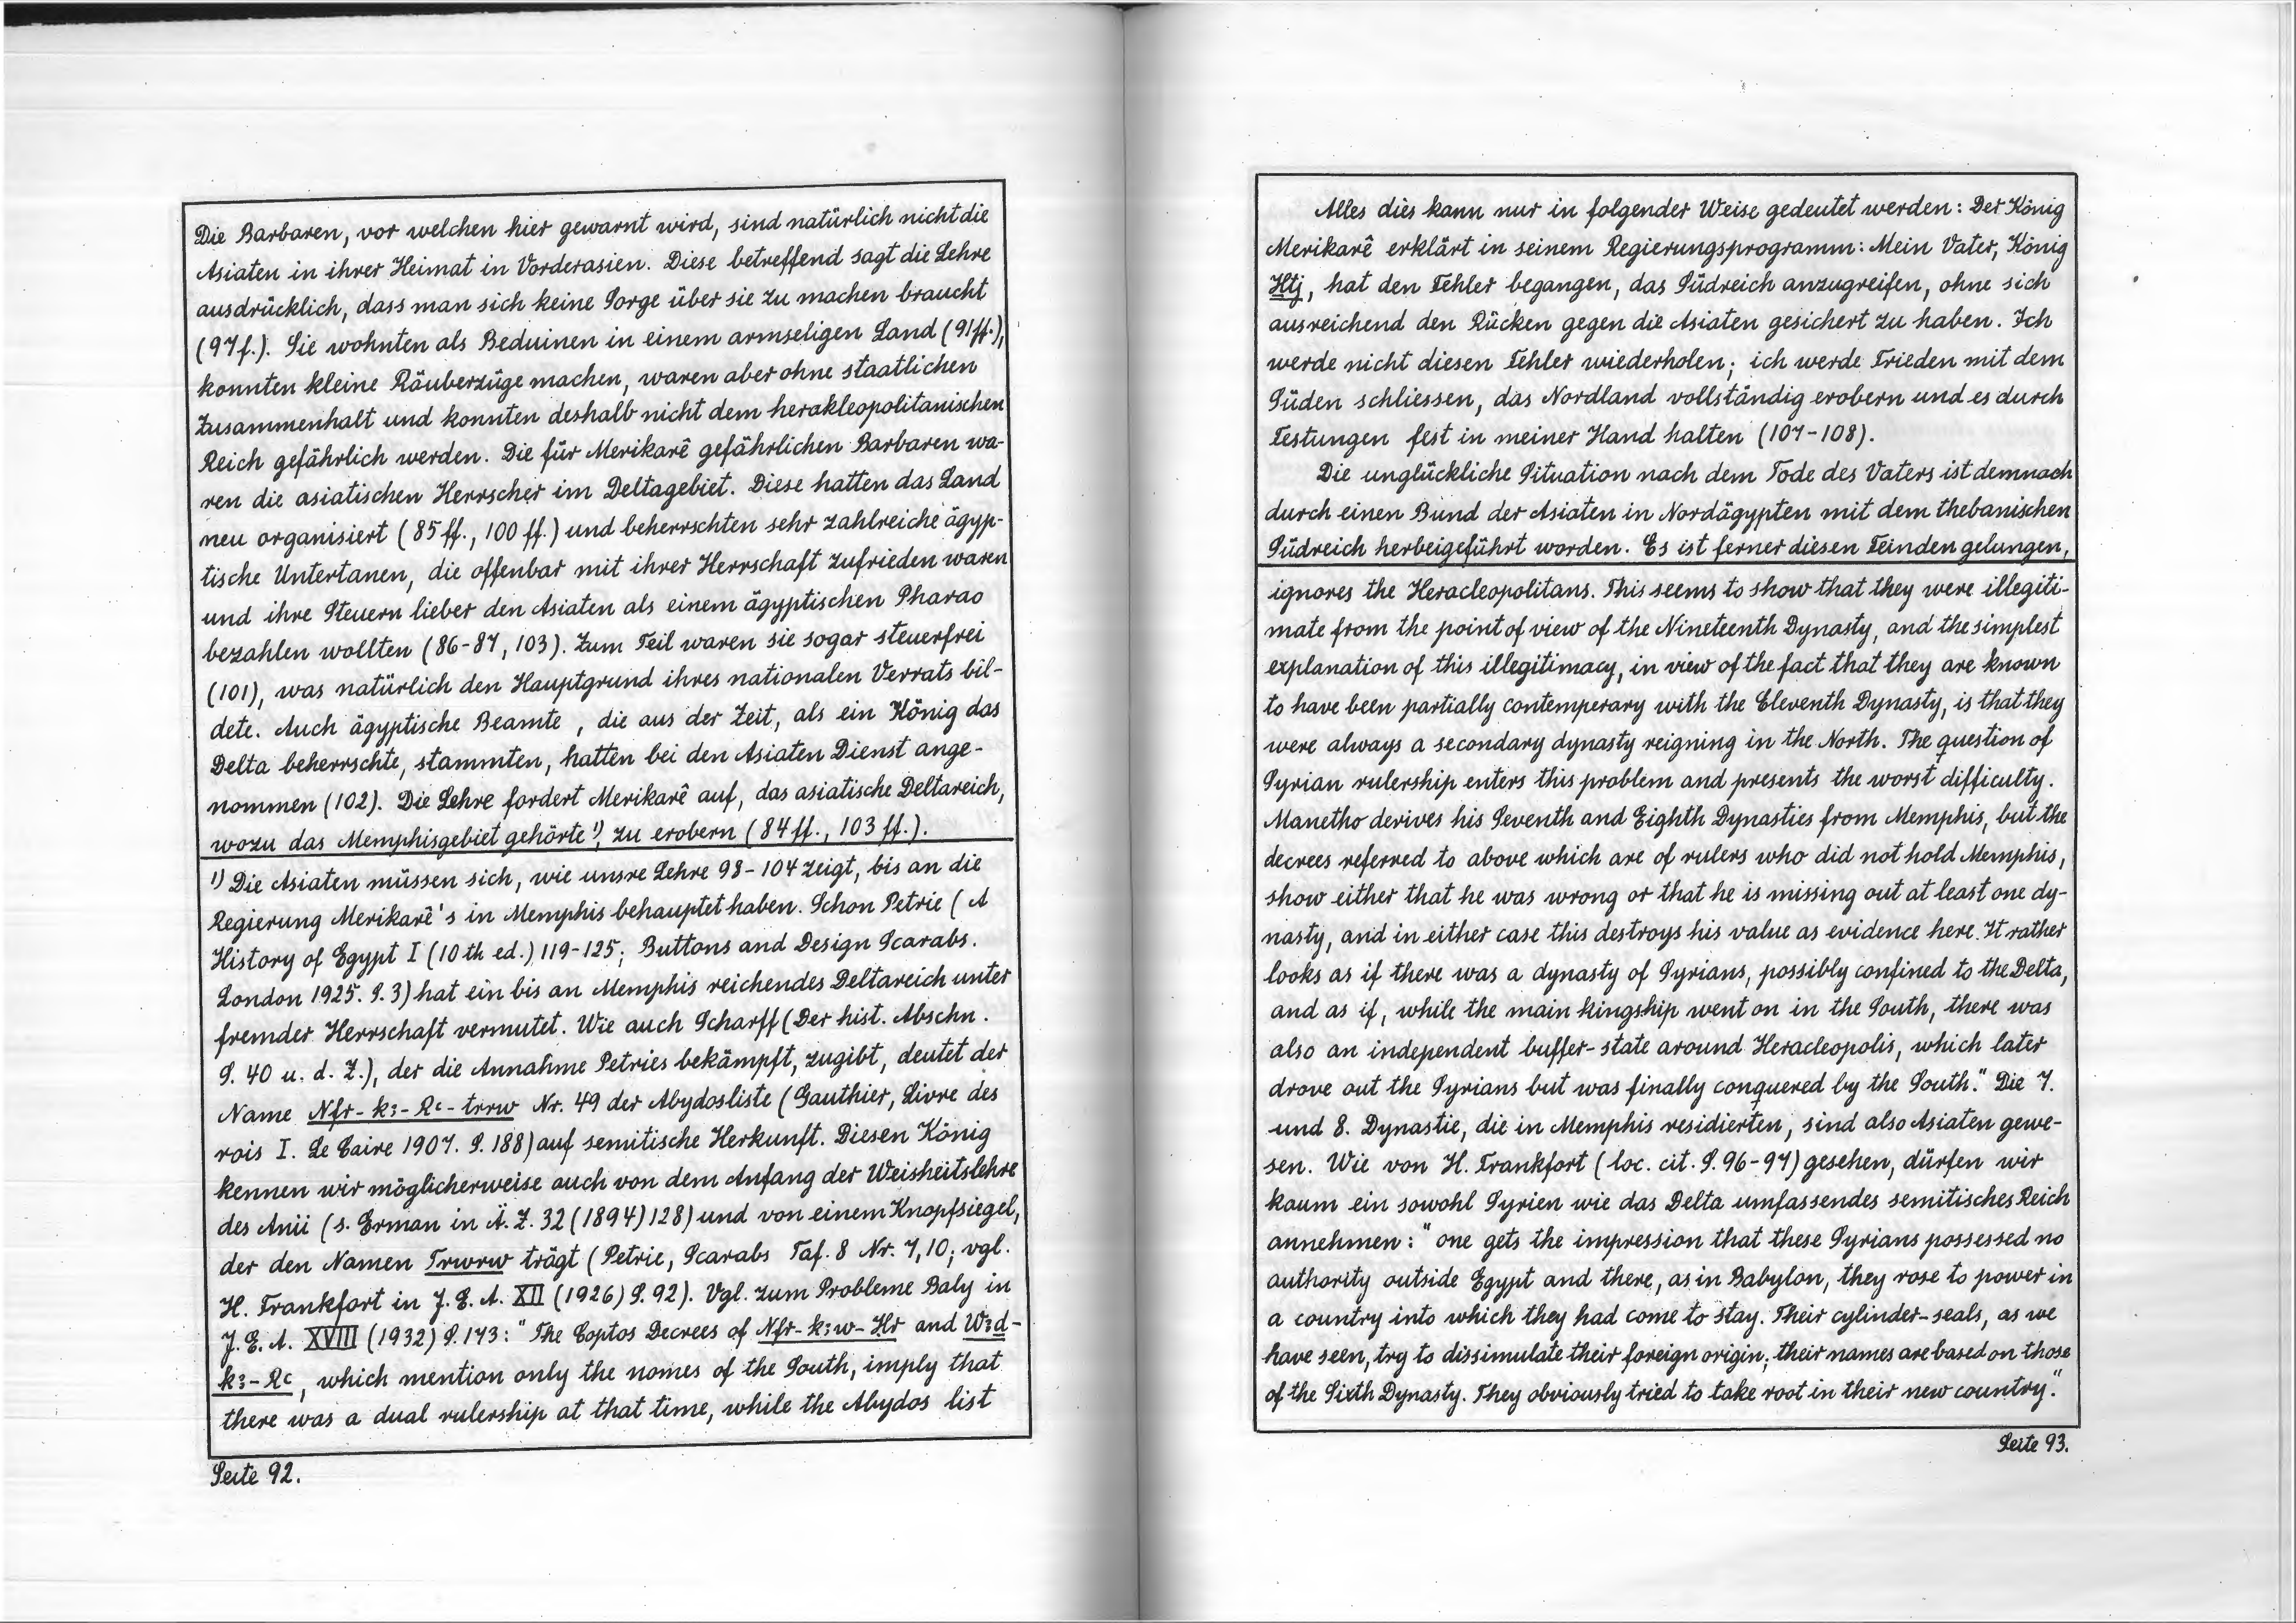 Die Barbaren, vor welchen hier gewarnt wird, sind natürlich nicht die
Asiaten in ihrer Heimat in Vorderasien. Diese betreffend sagt die Lehre
ausdrücklich, dass man sich keine Sorge über sie zu machen braucht
(97f.). Sie wohnten als Beduinen in einem armseligen Land (91ff.),
konnten kleine Räuberzüge machen, waren aber ohne staatlichen
Zusammenhalt und konnten deshalb nicht dem herakleopolitanischen
Reich gefährlich werden. Die für Merikarê gefährlichen Barbaren wa-
ren die asiatischen Herrscher im Deltagebiet. Diese hatten das Land
neu organisiert (85ff., 100 ff.) und beherrschten sehr zahlreiche ägyp-
tische Untertanen, die offenbar mit ihrer Herrschaft zufrieden waren
und ihre Steuern lieber den Asiaten als einem ägyptischen Pharao
bezahlen wollten (86-87, 103). Zum Teil waren sie sogar steuerfrei
(101), was natürlich den Hauptgrund ihres nationalen Verrats bil-
dete. Auch ägyptische Beamte, die aus der Zeit, als ein König das
Delta beherrschte, stammten, hatten bei den Asiaten Dienst ange-
nommen (102). Die Lehre fordert Merikarê auf, das asiatische Deltareich,
wozu das Memphisgebiet gehörte¹), zu erobern (84ff., 103ff.).
¹) Die Asiaten müssen sich, wie unsre Lehre 98-104 zeigt, bis an die
Regierung Merikarê's in Memphis behauptet haben. Schon Petrie (A
History of Egypt I (10th ed.) 119-125; Buttons and Design Scarabs.
London 1925. S. 3) hat ein bis an Memphis reichendes Deltareich unter
fremder Herrschaft vermutet. Wie auch Scharff (Der hist. Abschn.
S. 40 u. d. Z.), der die Annahme Petries bekämpft, zugibt, deutet der
Name Nfr-kꜣ-Rꜥ-trrw Nr. 49 der Abydosliste (Gauthier, Livre des
rois I. Le Caire 1907. S. 188) auf semitische Herkunft. Diesen König
kennen wir möglicherweise auch von dem Anfang der Weisheitslehre
des Anii (s. Erman in Ä. Z. 32 (1894) 128) und von einem Knopfsiegel,
der den Namen Trwrw trägt (Petrie, Scarabs Taf. 8 Nr. 7,10; vgl.
H. Frankfort in J. E. A. XII (1926) S. 92). Vgl. zum Probleme Baly in
J. E. A. XVIII (1932) S. 173: "The Coptos Decrees of Nfr-kꜣw-Ḥr and Wꜣḏ-
kꜣ-Rꜥ, which mention only the nomes of the South, imply that
there was a dual rulership at that time, while the Abydos list
Seite 92.
Alles dies kann nur in folgender Weise gedeutet werden: Der König
Merikarê erklärt in seinem Regierungsprogramm: Mein Vater, König
Ḫtj, hat den Fehler begangen, das Südreich anzugreifen, ohne sich
ausreichend den Rücken gegen die Asiaten gesichert zu haben. Ich
werde nicht diesen Fehler wiederholen; ich werde Frieden mit dem
Süden schliessen, das Nordland vollständig erobern und es durch
Festungen fest in meiner Hand halten (107-108).
Die unglückliche Situation nach dem Tode des Vaters ist demnach
durch einen Bund der Asiaten in Nordägypten mit dem thebanischen
Südreich herbeigeführt worden. Es ist ferner diesen Feinden gelungen,
ignores the Heracleopolitans. This seems to show that they were illegiti-
mate from the point of view of the Nineteenth Dynasty, and the simplest
explanation of this illegitimacy, in view of the fact that they are known
to have been partially contemperary with the Eleventh Dynasty, is that they
were always a secondary dynasty reigning in the North. The question of
Syrian rulership enters this problem and presents the worst difficulty.
Manetho derives his Seventh and Eighth Dynasties from Memphis, but the
decrees referred to above which are of rulers who did not hold Memphis,
show either that he was wrong or that he is missing out at least one dy-
nasty, and in either case this destroys his value as evidence here. It rather
looks as if there was a dynasty of Syrians, possibly confined to the Delta,
and as if, while the main kingship went on in the South, there was
also an independent buffer-state around Heracleopolis, which later
drove out the Syrians but was finally conquered by the South." Die 7.
und 8. Dynastie, die in Memphis residierten, sind also Asiaten gewe-
sen. Wie von H. Frankfort (loc. cit. S. 96-97) gesehen, dürfen wir
kaum ein sowohl Syrien wie das Delta umfassendes semitisches Reich
annehmen: "one gets the impression that these Syrians possessed no
authority outside Egypt and there, as in Babylon, they rose to power in
a country into which they had come to stay. Their cylinder-seals, as we
have seen, try to dissimulate their foreign origin; their names are based on those
of the Sixth Dynasty. They obviously tried to take root in their new country."
Seite 93.